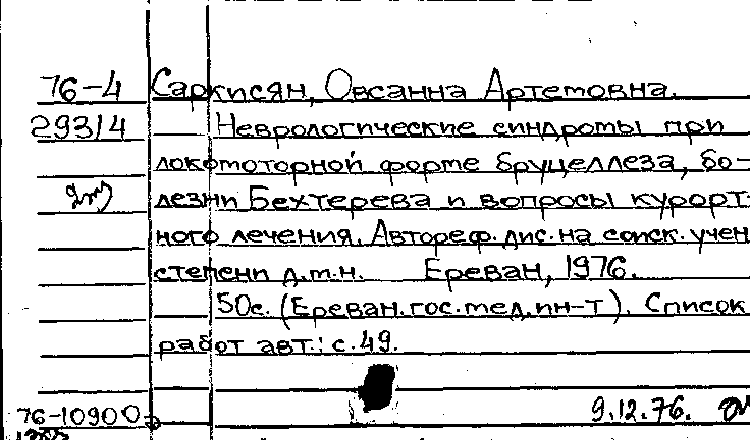 76-4 Саркисян, Овсанна Артемовна.
29314 Неврологические синдромы при
локомоторной форме бруцеллеза, бо-
лезни Бехтерева и вопросы курорт-
ного лечения. Автореф. дис. на соиск. учен
степени д.м.н. Ереван, 1976.
50с. (Ереван. гос. мед. ин-т). Список
работ авт.: с. 49.
9.12.76.
76-10900